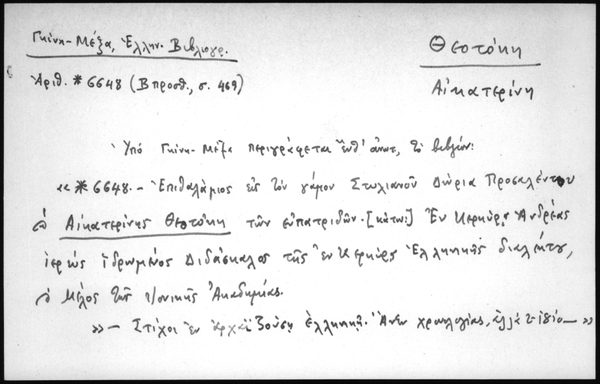 Γκίνη-Μέξα, Ἑλλην. Βιβλιογρ.
Θεοτόκη
Ἀριθ. *6648 (Β προσθ., σ. 469)
Αἰκατερίνη
Ὑπό Γκίνη-Μέξα περιγράφεται ἔνθ' ἀνωτ. τό βιβλίον:
«*6648.- Ἐπιθαλάμιος εἰς τόν γάμον Στυλιανοῦ Δώρια Προσαλένδου
Αἰκατερίνης Θεοτόκη τῶν εὐπατριδῶν. [κάτω:] Ἐν Κερκύρᾳ Ἀνδρέας
ἱερεύς Ἰδρωμένος Διδάσκαλος τῆς ἐν Κερκύρᾳ Ἑλληνικῆς διαλέκτου,
Μέλος τῆς Ἰονικῆς Ἀκαδημίας.
»- Στίχοι ἐν ἀρχαϊζούσῃ ἑλληνικῇ. Ἄνευ χρονολογίας,